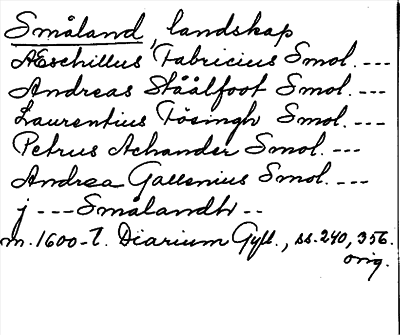 Småland, landskap
AEschillus Fabricius Smol. ---
AndreasStåålfoot Smol. ---
Laurentius Tösingh Smol. ---
Petrus Achander Smol. ---
Andrea Gallenius Smol. ---
j --- Smålandh --
m. 1600-t. Diarium Gyll., ss. 240, 356.
orig.